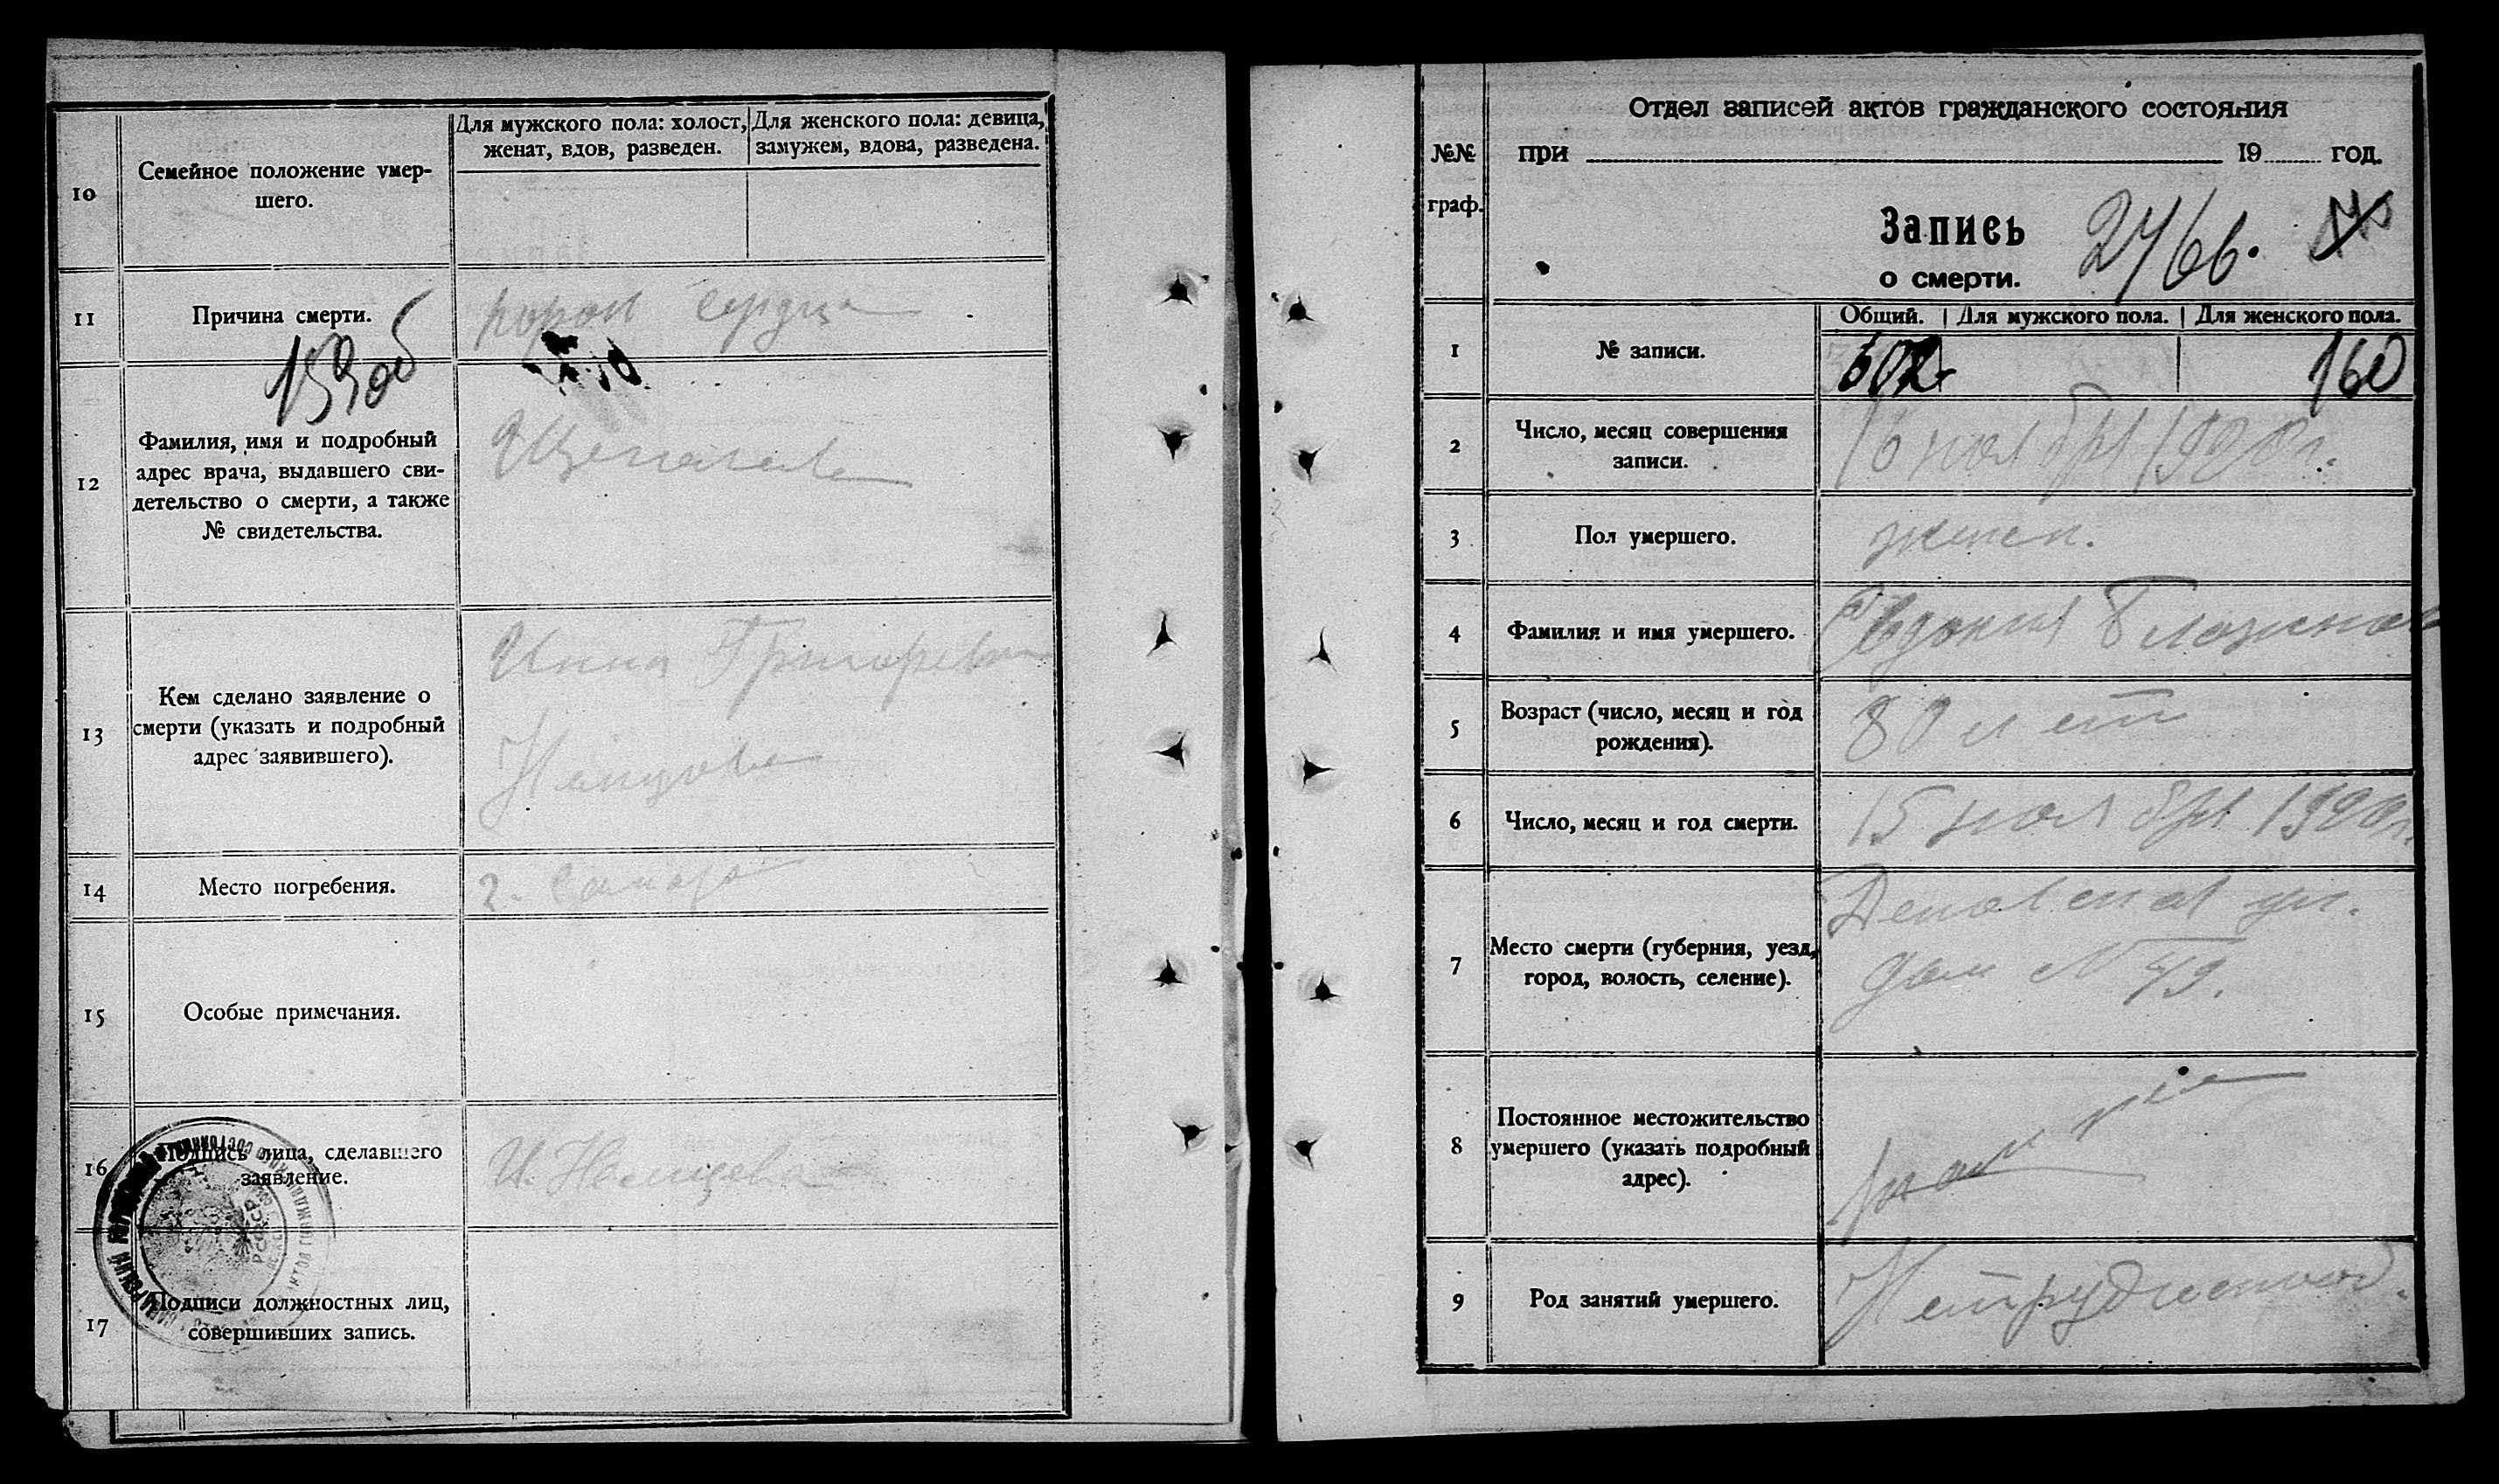 10
Семейное положение умер-
шего.
Для мужского пола: холост,
женат, вдов, разведен.
Для женского пола: девица,
замужем, вдова, разведена.
11
Причина смерти.
порок сердца
12
Фамилия, имя и подробный
адрес врача, выдавшего сви-
детельство о смерти, а также
№ свидетельства.
13
Кем сделано заявление о
смерти (указать и подробный
адрес заявившего).
14
Место погребения.
г. Самара
15
Особые примечания.
16
Подпись лица, сделавшего
заявление.
17
Подписи должностных лиц,
совершивших запись.
№№
граф.
Отдел записей актов гражданского состояния
при 19 год.
Запись
о смерти.
1
№ записи.
Общий. Для мужского пола. Для женского пола.
602 160
2
Число, месяц совершения
записи.
16 ноября 1920 г.
3
Пол умершего.
женск.
4
Фамилия и имя умершего.
Евдокия
5
Возраст (число, месяц и год
рождения).
80 лет
6
Число, месяц и год смерти.
15 ноября 1920 г.
7
Место смерти (губерния, уезд,
город, волость, селение).
ул.
дом №
8
Постоянное местожительство
умершего (указать подробный
адрес).
9
Род занятий умершего.
Нетрудоспособ.